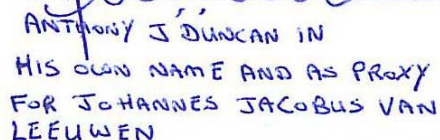 ANTHONY J DUNCAN IN
HIS OWN NAME AND AS PROXY
FOR JOHANNES JACOBUS VAN
LEEUWEN